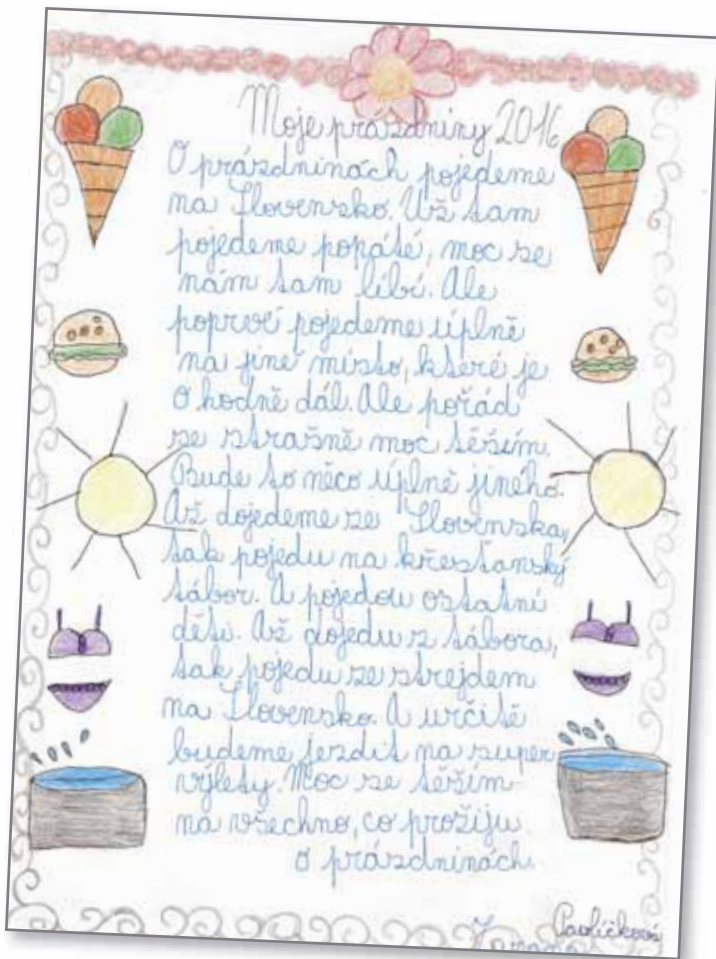 Moje prázdniny 2016
O prázdninách pojedeme
na Slovensko. Už tam
pojedeme popáté, moc se
nám tam líbí. Ale
poprvé pojedeme úplně
na jiné místo, které je
o hodně dál. Ale pořád
se strašně moc těším.
Bude to něco úplně jiného.
Až dojedeme ze Slovenska,
tak pojedu na křesťanský
tábor. A pojedou ostatní
děti. Až dojedu z tábora,
tak pojedu se strejdem
na Slovensko. A určitě
budeme jezdit na super
výlety. Moc se těším
na všechno, co prožiju
o prázdninách.
Pavlíčková